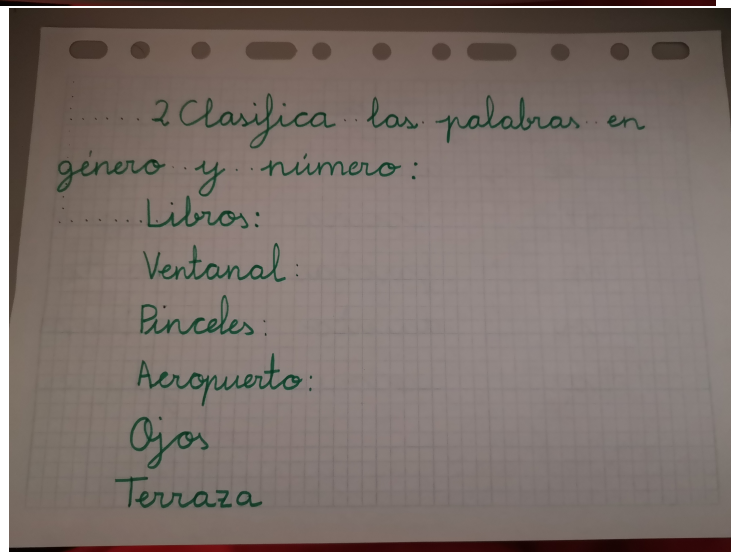 2 Clasifica las palabras en
género y número:
Libros:
Ventanal:
Pinceles:
Aeropuerto:
Ojos
Terraza